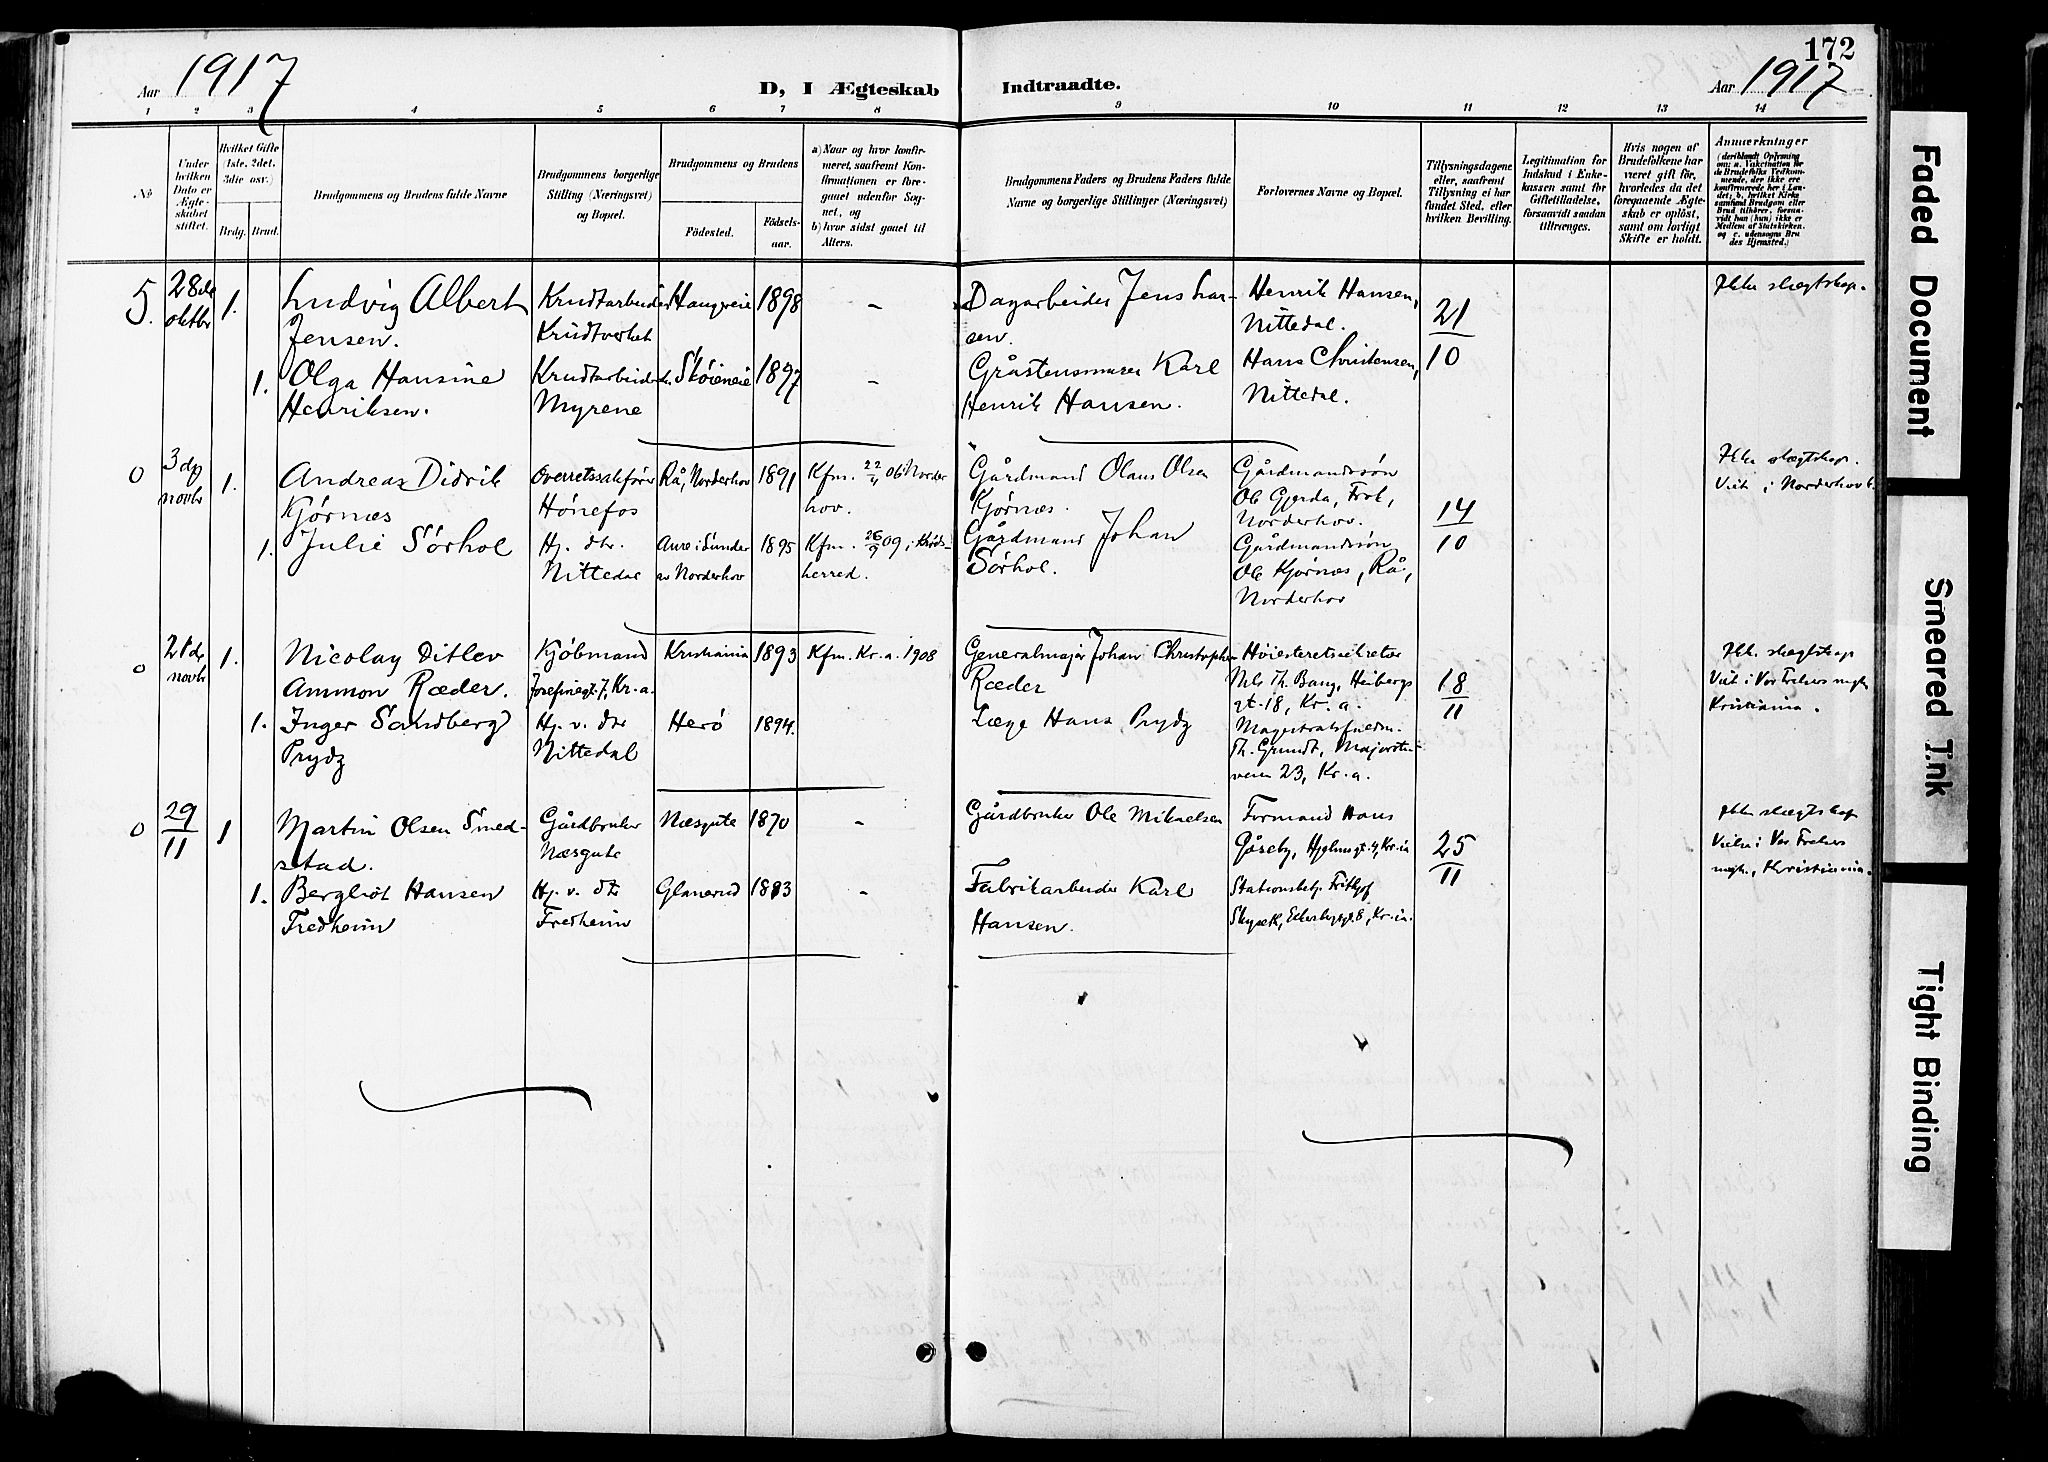 172
Aar 1917
D, I Ægteskab Indtraadte.
Aar 1917
1 2 3 4 5 6 7 8 9 10 11 12 13 14
No
Under hvilken Dato er Ægteskabet stiftet.
Hvilket Gifte (1ste, 2det, 3die osv.)
Brdg. Brud.
Brudgommens og Brudens fulde Navne
Brudgommens og Brudens borgerlige Stilling (Næringsvei) og Bopæl.
Brudgommens og Brudens
Fødested. Fødselsaar.
a) Naar og hvor konfirmeret, saafremt Konfirmationen er foregaaet udenfor Sognet, og
b) hvor sidst gaaet til Alters.
Brudgommens Faders og Brudens Faders fulde Navne og borgerlige Stillinger (Næringsvei)
Forlovernes Navne og Bopæl.
Tillysningsdagene eller, saafremt Tillysning ei har fundet Sted, efter hvilken Bevilling.
Legitimation for Indskud i Enkekassen samt for Giftetilladelse, forsaavidt saadan tiltrænges.
Hvis nogen af Brudefolkene har været gift før, hvorledes da det foregaaende Ægteskab er opløst, samt om lovligt Skifte er holdt.
Anmærkninger
5. 28de oktbr 1. Ludvig Albert Jensen. Krudtarbeider Krudtverket Haugseie 1898 –
Dagarbeider Jens Larsen. Henrik Hansen, Nittedal. 21/10 Ikke slægtskap.
1. Olga Hansine Henriksen. Krudtarbeider Myrene Skøieneie 1897 –
Gråstensmurer Karl Henrik Hansen. Hans Christensen, Nittedal.
0 3dje novbr 1. Andreas Didrik Kjørnæs Overretssakfører Hønefos Rå, Norderhov 1891 Kfm. 22/4 06 i Norderhov.
Gårdmand Olaus Olsen Kjørnæs. Gårdmandssøn Ole Gjerda, Norderhov. 14/10 Ikke slægtskap. Viet i Norderhov
1. Julie Sørhol Hj. dtr. Nittedal 1895 Kfm. 26/9 09 i herred.
Gårdmand Johan Sørhol. Gårdmandssøn Ole Kjørnæs, Rå, Norderhov
0 21de novbr 1. Nicolay Ditlev Ammon Ræder. Kjøbmand Josefinegt. 7, Kr.a. Kristiania 1893 Kfm. Kr.a. 1908
Generalmajor Johan Christopher Ræder Høiesteretssekretær Nils Th. Bang, Heibergs gt. 18, Kr.a. 18/11 Ikke slægtskap Viet i Vor Frelsers Kristiania.
1. Inger Sandberg Prydz Hj. v. dtr Nittedal Herø 1894.
Læge Hans Prydz Th. Grundt, Majorstuveien 23, Kr.a.
0 29/11 1 Martin Olsen Smedstad. Gårdbruker Næsgute Næsgute 1870 –
Gårdbruker Ole Mikaelsen Formand Hans Gåseby, Kr.ia 25/11 Ikke slægtskap Viet i Vor Frelsers Kristiania.
1. Bergliot Hansen Fredheim Hj. v. dtr Fredheim Glanerud 1883 –
Fabrikarbeider Karl Hansen. Kr.ia.
Faded Document
Smeared Ink
Tight Binding